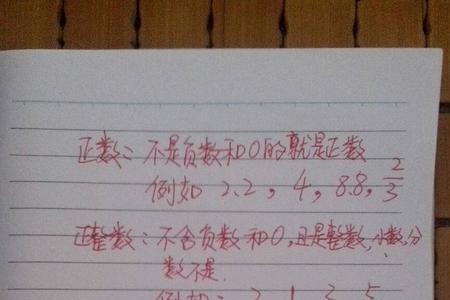 正数：不是负数和0的就是正数
例如 2.2，4，8.8，2/3
正整数：不含负数和0，且是整数，小数、分
数不是.
例如：2 1 3 5